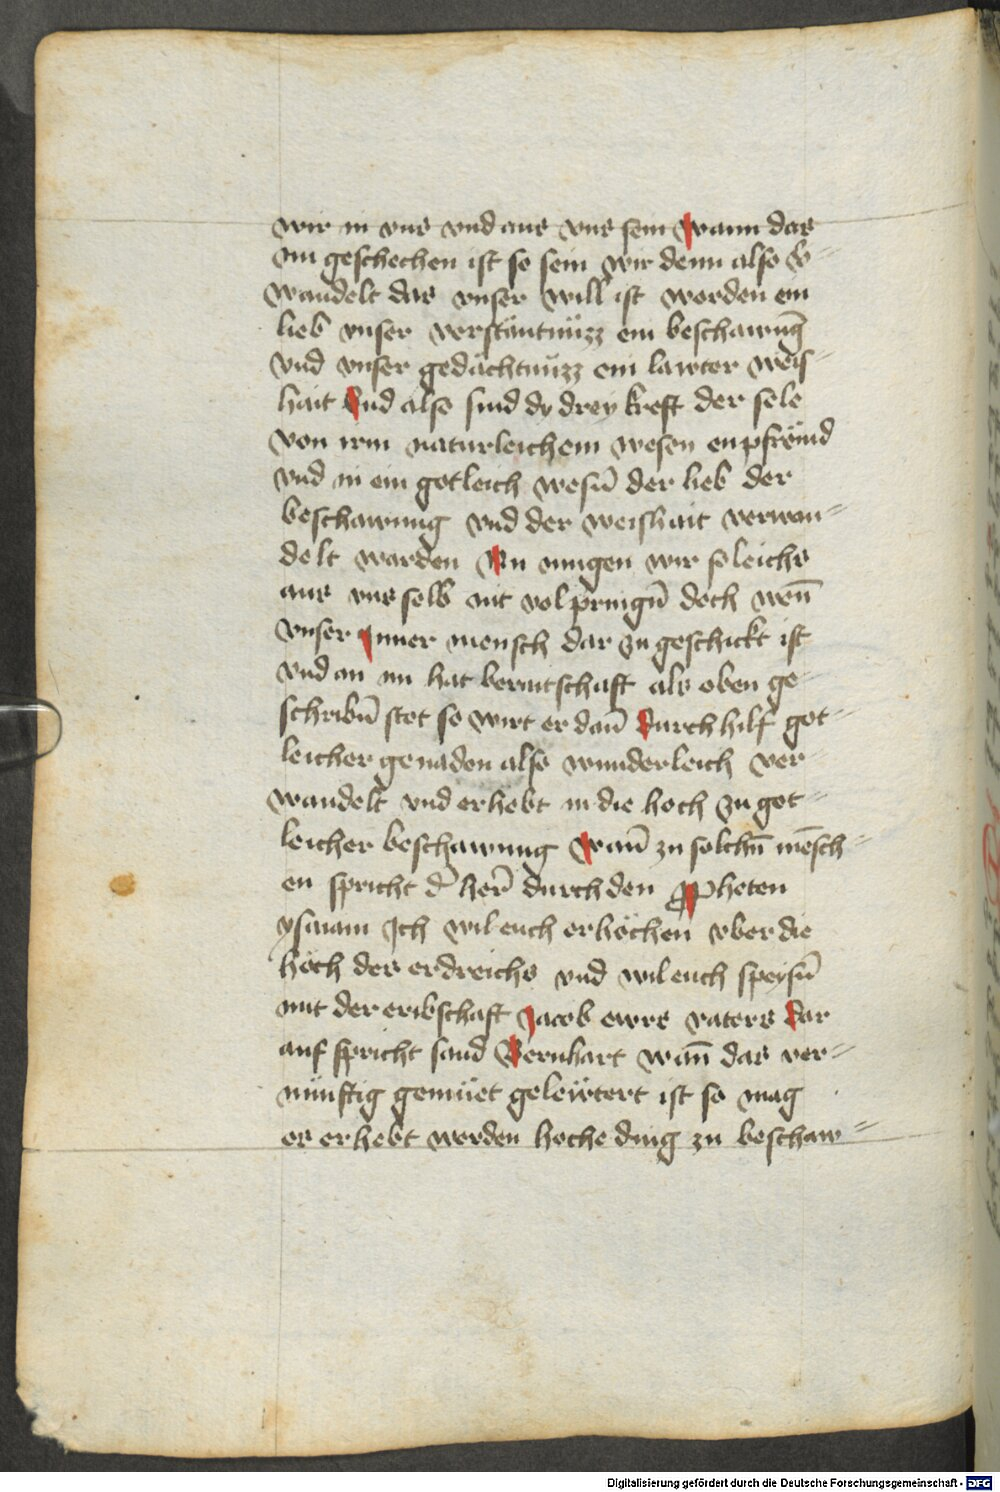 wir in vns vnd aus vns sein Wann das
nu geschechen ist so sein wir denn also v̄-
wandelt das vnser will ist worden ein
lieb vnser verstäntnüzz ein beschawūg
vnd vnser gedächtnüzz ein lawter weis-
hait Vnd also sind dy drey kreft der sele
von irm naturleichem wesen enpfrömd
vnd in ein gotleich wesū der lieb der
beschawung vnd der weishait verwan-
delt warden Nu mugen wir soleichs
aus vns selb nit volpringū doch wen̄
vnser Inner mensch dar zu geschickt ist
vnd an im hat beraitschaft als oben ge-
schribū stet so wirt er dan̄ Durch hilf got-
leicher genaden also wunderleich ver-
wandelt vnd erhebt in die hoch zu got-
leicher beschawung Wan̄ zu solchn̄ men̄sch-
en spricht d̄ her̄ durch den Propheten
ysaiam Ich wil euch erhöchen vber die
höch des erdreichs vnd wil euch speysū
mit der eribschaft Jacob ewrs vaters Dar
auf spricht sand Bernhart wan̄ das ver-
nünftig gemüet geleẅtert ist so mag
er erhebt werden hoche ding zu beschaw-
Digitalisierung gefördert durch die Deutsche Forschungsgemeinschaft - DFG